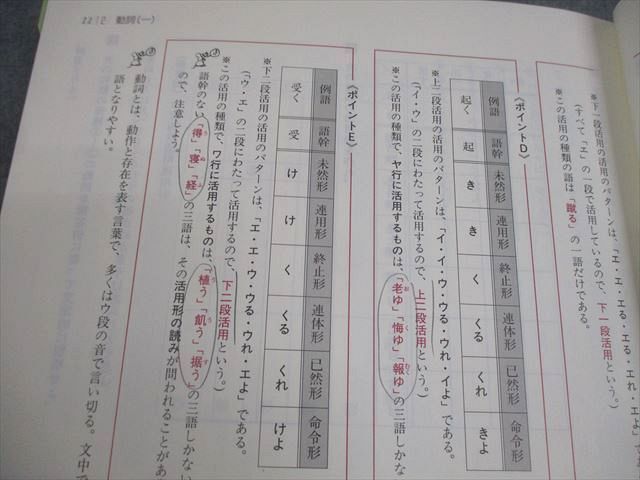 22 動詞(一)
※下一段活用の活用のパターンは、「エ・エ・エる・エる・エれ・エよ」
(すべて「エ」の一段で活用しているので、下一段活用という。)
※この活用の種類の語は「蹴る」の一語だけである。
《ポイントD》
例語 語幹 未然形 連用形 終止形 連体形 已然形 命令形
起く 起 き き く くる くれ きよ
※上二段活用の活用のパターンは、「イ・イ・ウ・ウる・ウれ・イよ」である。
(「イ・ウ」の二段にわたって活用するので、上二段活用という。)
※この活用の種類で、ヤ行に活用するものは、「老ゆ」「悔ゆ」「報ゆ」の三語しかな
《ポイントE》
例語 語幹 未然形 連用形 終止形 連体形 已然形 命令形
受く 受 け け く くる くれ けよ
※下二段活用の活用のパターンは、「エ・エ・ウ・ウる・ウれ・エよ」である。
(「ウ・エ」の二段にわたって活用するので、下二段活用という。)
※この活用の種類で、ワ行に活用するものは、「植う」「飢う」「据う」の三語しかない
語幹のない「得」「寝」「経」の三語は、その活用形の読みが問われることがあ
ので、注意しよう。
動詞とは、動作と存在を表す言葉で、多くはウ段の音で言い切る。文中で
語となりやすい。